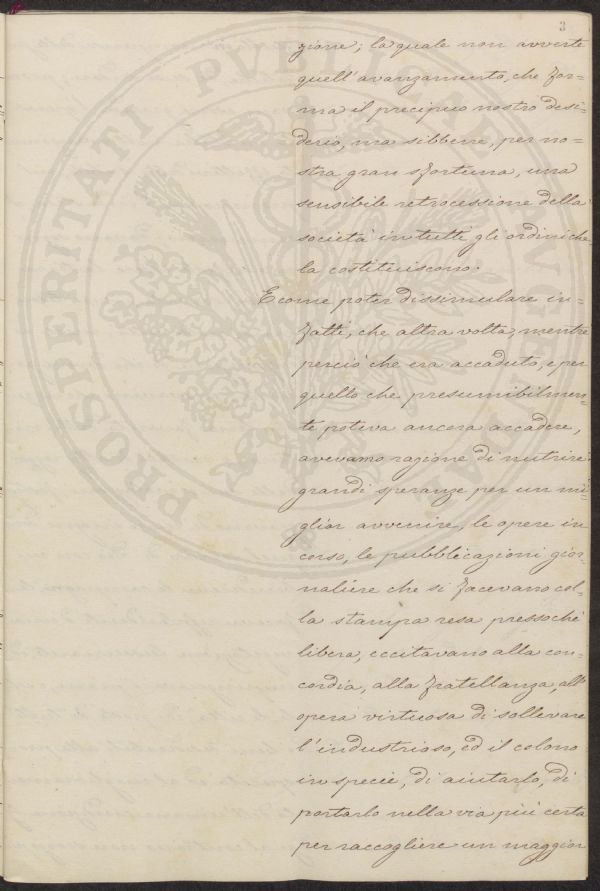 3
zione; la quale non avverte
quell'avanzamento, che for=
ma il precipuo nostro desi=
derio, ma sibbene, per no=
stra gran sfortuna, una
sensibile retrocessione della
società in tutti gli ordini che
la costituiscono.
E come poter dissimulare in=
fatti, che altra volta, mentre
perciò che era accaduto, e per
quello che presumibilmen=
te poteva ancora accadere,
avevamo ragione di nutrire
grandi speranze per un mi=
glior avvenire, le opere in
corso, le pubblicazioni gior=
naliere che si facevano col=
la stampa resa pressochè
libera, eccitavano alla con=
cordia, alla fratellanza, all'
opera virtuosa di sollevare
l'industrioso, ed il colono
in specie, di aiutarlo, di
portarlo nella via più certa
per raccogliere un maggior
PROSPERITATI PVBLICAE